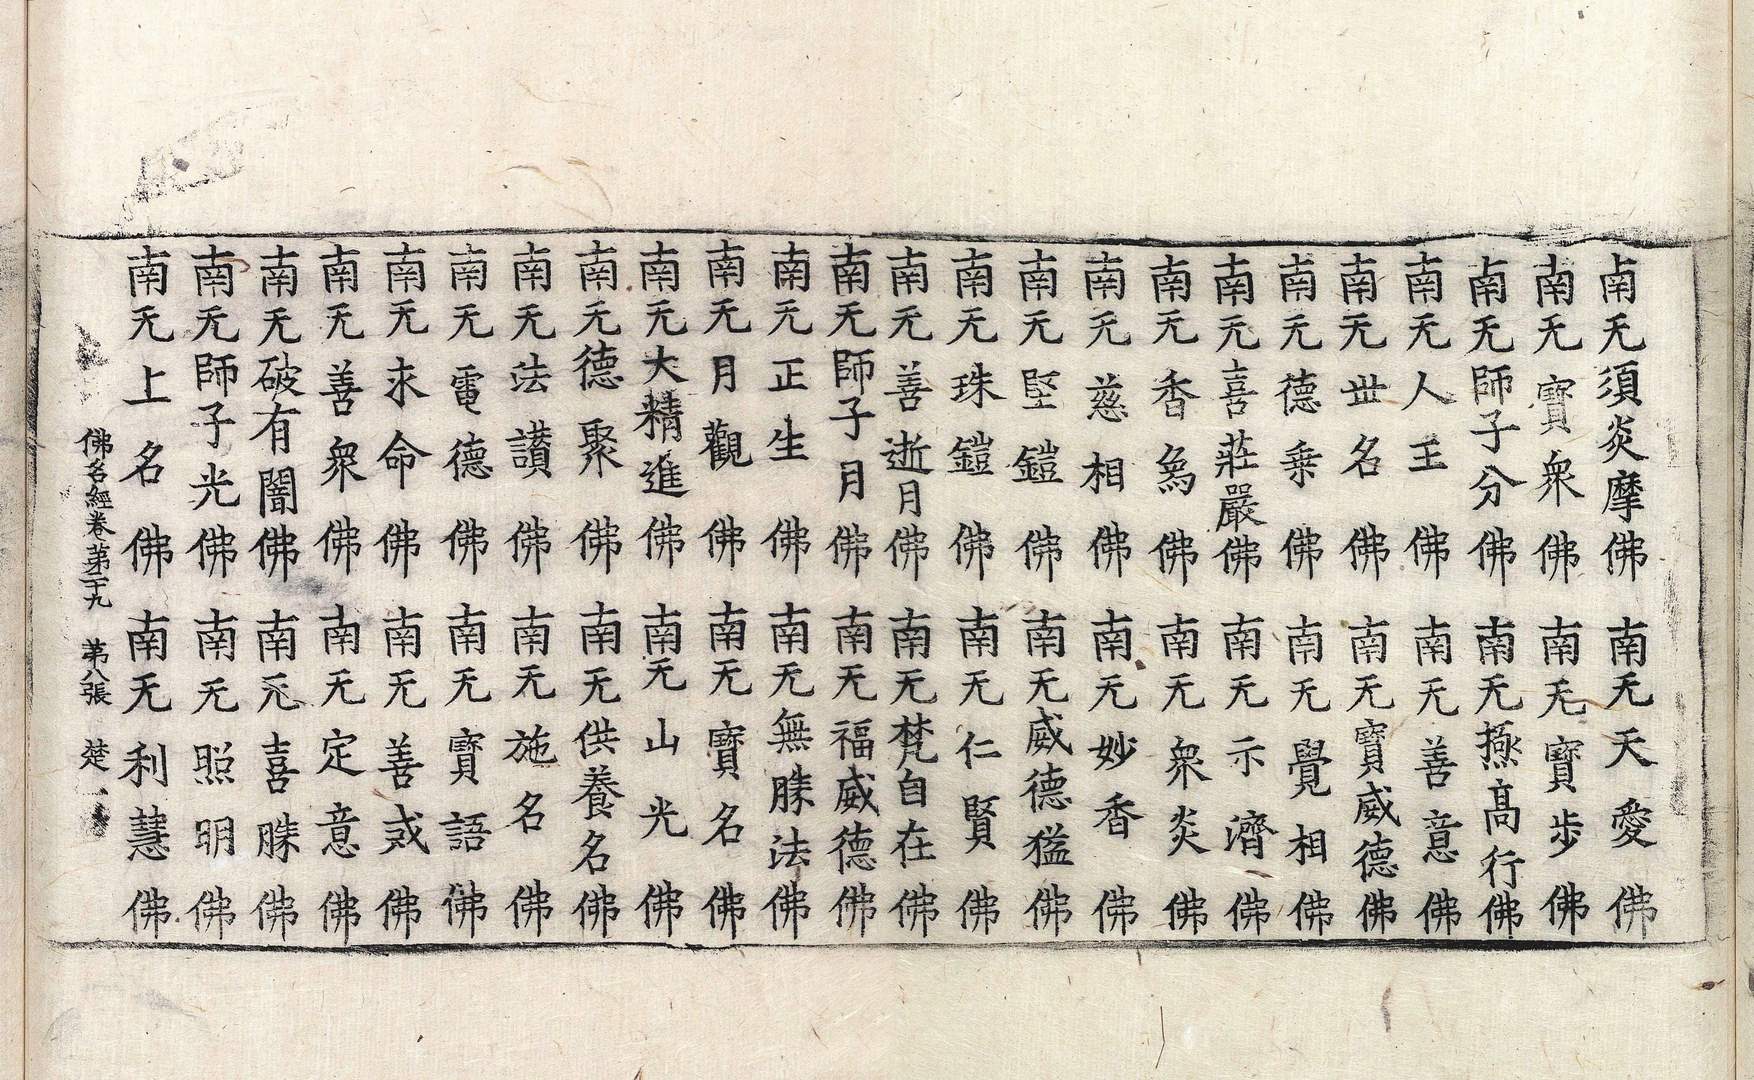 南无須炎摩佛 南无天愛佛
南无寶衆佛 南无寶步佛
南无師子分佛 南无極高行佛
南无人王佛 南无善意佛
南无世名佛 南无寶威德佛
南无德乘佛 南无覺相佛
南无喜莊嚴佛 南无示濟佛
南无香為佛 南无衆炎佛
南无慈相佛 南无妙香佛
南无堅鎧佛 南无威德猛佛
南无珠鎧佛 南无仁賢佛
南无善逝月佛 南无梵自在佛
南无師子月佛 南无福威德佛
南无正生佛 南无無勝法佛
南无月觀佛 南无寶名佛
南无大精進佛 南无山光佛
南无德聚佛 南无供養名佛
南无法讃佛 南无施名佛
南无電德佛 南无寶語佛
南无求命佛 南无善戒佛
南无善衆佛 南无定意佛
南无破有闇佛 南无喜勝佛
南无師子光佛 南无照明佛
南无上名佛 南无利慧佛
佛名經卷第二十九 第八張 楚